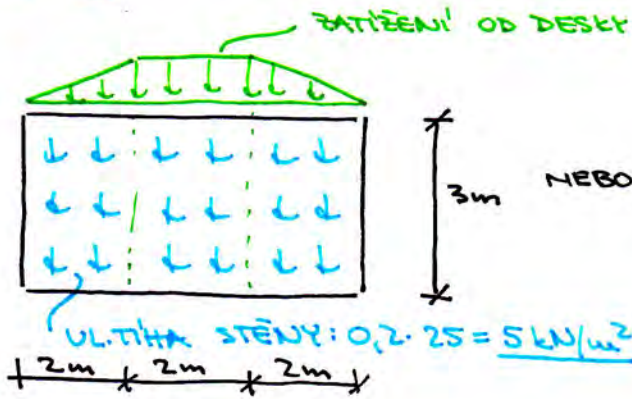 ZATÍŽENÍ OD DESKY
3m
NEBO
VL.TÍHA STĚNY: 0,2·25 = 5 kN/m²
2m 2m 2m